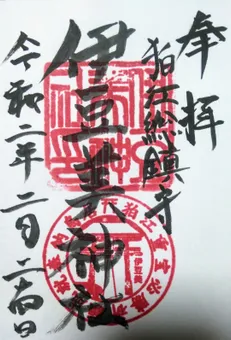 奉拝
狛江総鎮守
伊豆美神社
令和二年二月二十四日